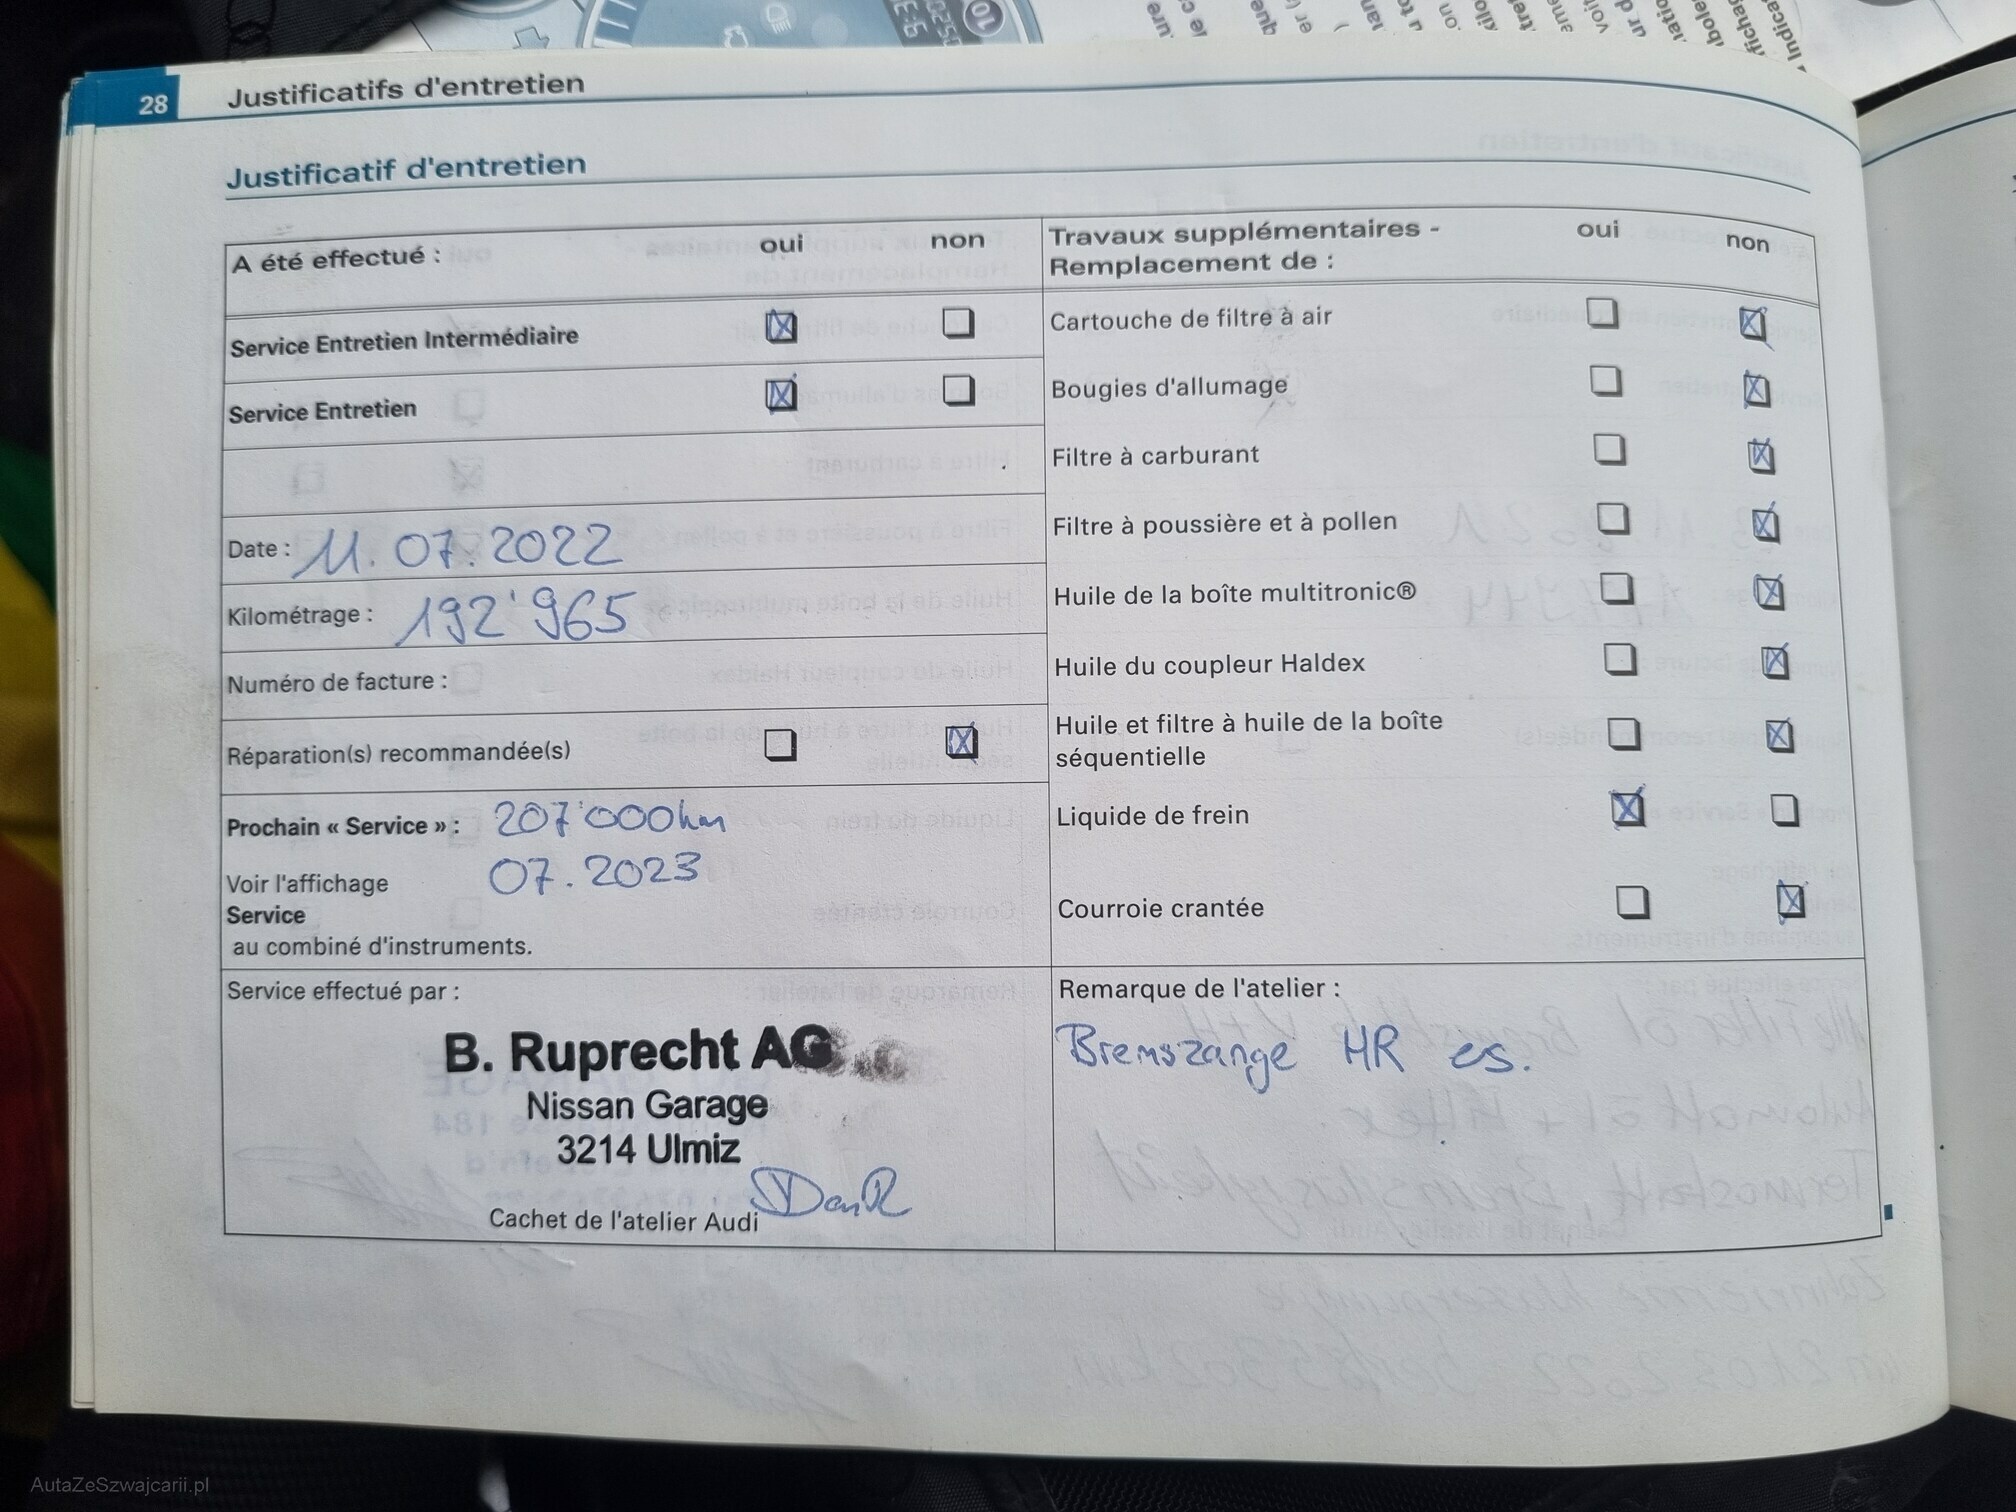 28 Justificatifs d'entretien
Justificatif d'entretien
A été effectué : oui non
Service Entretien Intermédiaire
Service Entretien
Date : 11.07.2022
Kilométrage : 192'965
Numéro de facture :
Réparation(s) recommandée(s)
Prochain « Service » : 207'000km
07.2023
Voir l'affichage
Service
au combiné d'instruments.
Service effectué par :
B. Ruprecht AG
Nissan Garage
3214 Ulmiz
Cachet de l'atelier Audi
Travaux supplémentaires -
Remplacement de :
oui non
Cartouche de filtre à air
Bougies d'allumage
Filtre à carburant
Filtre à poussière et à pollen
Huile de la boîte multitronic®
Huile du coupleur Haldex
Huile et filtre à huile de la boîte
séquentielle
Liquide de frein
Courroie crantée
Remarque de l'atelier :
Bremszange HR es.
AutaZeSzwajcarii.pl